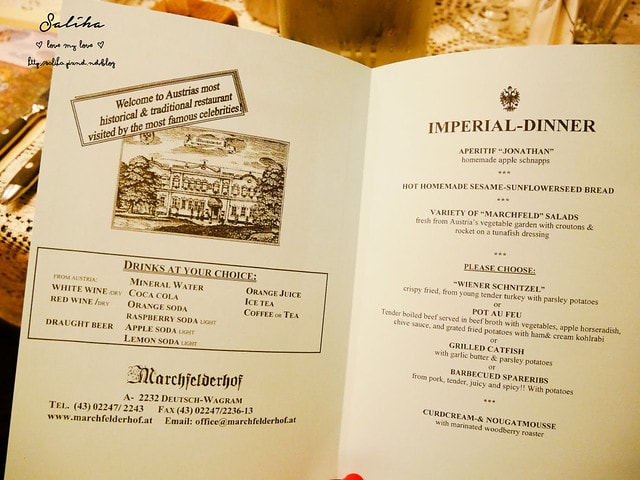 Saliha
♡ love my love ♡
http://saliha.pixnet.net/blog
Welcome to Austrias most
historical & traditional restaurant
visited by the most famous celebrities!
DRINKS AT YOUR CHOICE:
FROM AUSTRIA:
WHITE WINE /DRY
RED WINE /DRY
DRAUGHT BEER
MINERAL WATER
COCA COLA
ORANGE SODA
RASPBERRY SODA LIGHT
APPLE SODA LIGHT
LEMON SODA LIGHT
ORANGE JUICE
ICE TEA
COFFEE OR TEA
Marchfelderhof
A- 2232 DEUTSCH-WAGRAM
TEL. (43) 02247/ 2243 FAX (43) 02247/2236-13
www.marchfelderhof.at Email: office@marchfelderhof.at
IMPERIAL-DINNER
APERITIF “JONATHAN”
homemade apple schnapps
***
HOT HOMEMADE SESAME-SUNFLOWERSEED BREAD
***
VARIETY OF “MARCHFELD” SALADS
fresh from Austria’s vegetable garden with croutons &
rocket on a tunafish dressing
***
PLEASE CHOOSE:
“WIENER SCHNITZEL”
crispy fried, from young tender turkey with parsley potatoes
or
POT AU FEU
Tender boiled beef served in beef broth with vegetables, apple horseradish,
chive sauce, and grated fried potatoes with ham& cream kohlrabi
or
GRILLED CATFISH
with garlic butter & parsley potatoes
or
BARBECUED SPARERIBS
from pork, tender, juicy and spicy!! With potatoes
***
CURDCREAM-& NOUGATMOUSSE
with marinated woodberry roaster